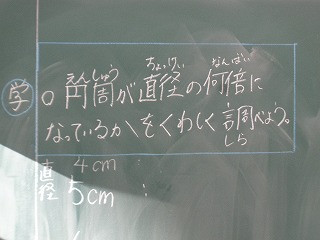 えんしゅう ちょっけい なんばい
学 ○円周が直径の何倍に
なっているかをくわしく調べよう。
しら
直径 4cm :
5cm :